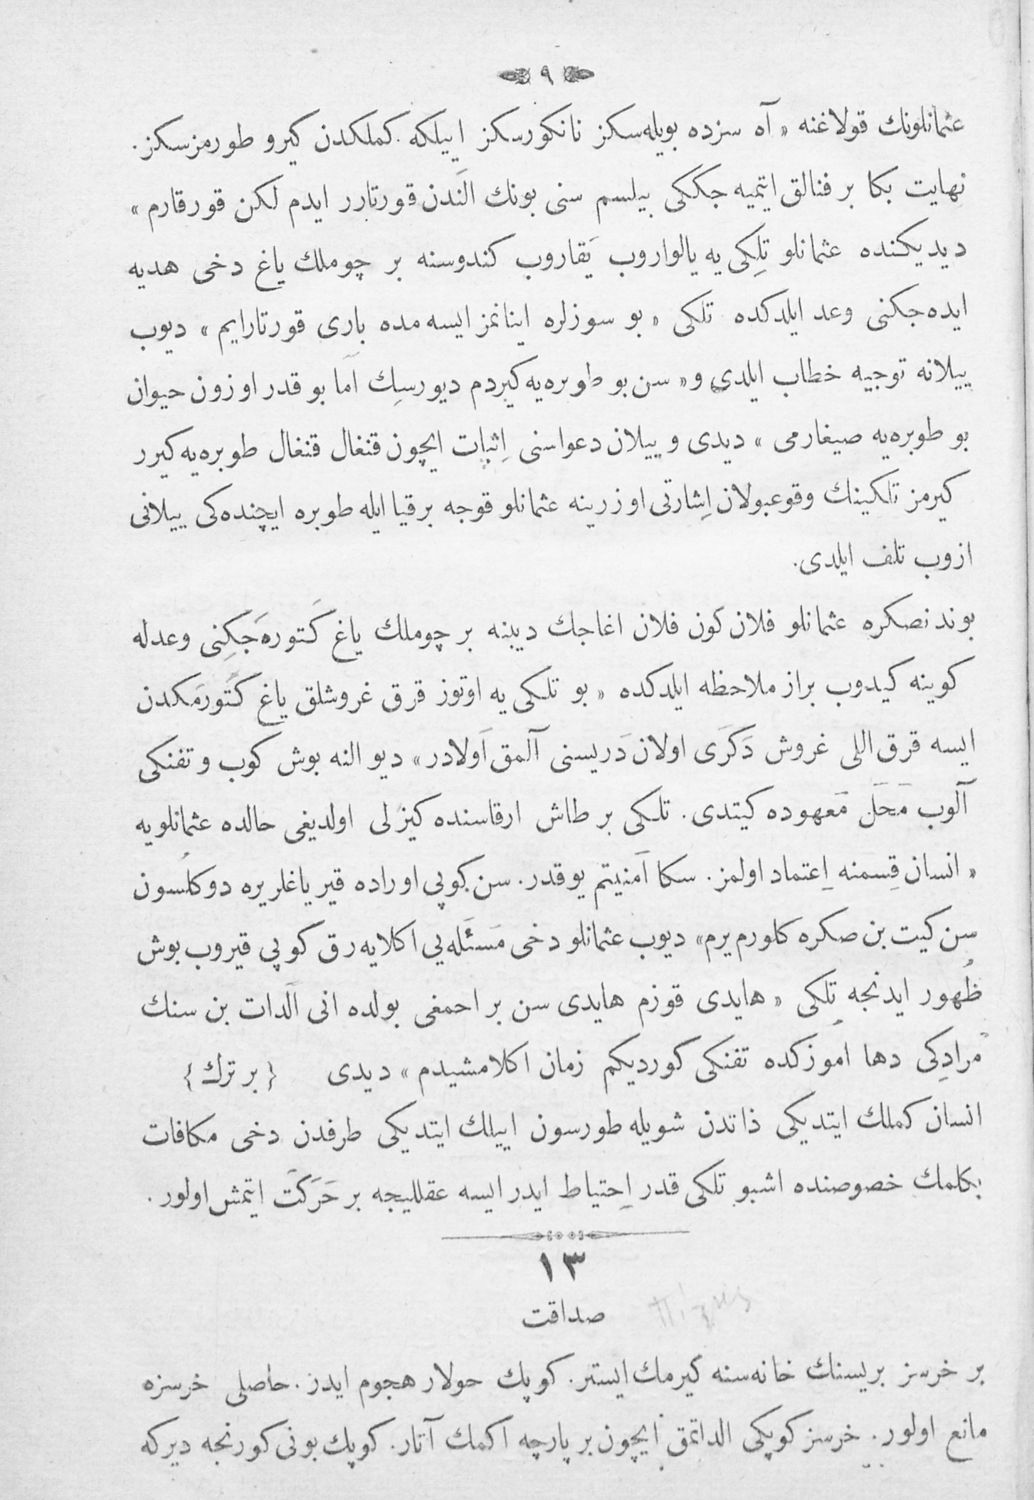 ٩
عثمانلونك قولاغنه « آه سزده بويله‌سكز نانكورسكز اييلكه كملكدن كيرو طورمزسكز.
نهايت بكا بر فنالق ايتميه جككى بيلسم سنى بونك اَلندن قورتارر ايدم لكن قورقارم »
ديديكنده عثمانلو تِلكى يه يالواروب يَقاروب كندوسنه بر چوملك ياغ دخى هديه
ايده‌جكنى وعد ايلدكده تلكى « بو سوزلره اينانمز ايسه مده بارى قورتارايم » ديوب
ييلانه توجيه خطاب ايلدى و« سن بو طوبره‌يه كيردم ديورسِك اَما بو قدر اوزون حيوان
بو طوبره‌يه صيغارمى » ديدى و ييلان دعواسنى اِثبات ايچون قنغال قنغال طوبره‌يه كيرر
كيرمز تلكينك وقوعبولان اِشارتى اوزرينه عثمانلو قوجه برقيا ايله طوبره ايچنده‌كى ييلانى
ازوب تلف ايلدى.
بوندنصكره عثمانلو فلان كون فلان اغاجك ديبنه بر چوملك ياغ كَتوره‌جكِنى وعدله
كوينه كيدوب براز ملاحظه ايلدكده « بو تلكى يه اوتوز قرق غروشلق ياغ كَتورمَكدن
ايسه قرق اللى غروش دَكَرى اولان دَريسنى آلمق اَولادر» ديو النه بوش كوب و تفنكى
آلوب مَحَل مَعهوده كيتدى. تلكى بر طاش ارقاسنده كيزلى اولديغى حالده عثمانلويه
« انسان قِسمنه اِعتماد اولمز. سكا اَمنيتم يوقدر. سن كوپى اوراده قير ياغلر يره دوكلسون
سن كيت بن صكره كلورم يرم» ديوب عثمانلو دخى مَسئَله‌يى اكلايه‌رق كوپى قيروب بوش
ظُهور ايدنجه تِلكى « هايدى قوزم هايدى سن بر احمغى بولده انى اَلدات بن سنك
مرادِكى دها اموزكده تفنكى كورديكم زمان اكلامشيدم » ديدى { بر ترك }
انسان كملك ايتديكى ذاتدن شويله طورسون اييلك ايتديكى طرفدن دخى مكافات
بكلمك خصوصنده اشبو تلكى قدر اِحتياط ايدر ايسه عقلليجه بر حَرَكَت ايتمش اولور.
١٣
صداقت
بر خرسز بريسنك خانه‌سنه كيرمك ايستر. كوپك حولار هجوم ايدر. حاصلى خرسزه
مانع اولور. خرسز كوپكى الداتمق ايچون بر پارچه اكمك آتار. كوپك بونى كورنجه ديركه